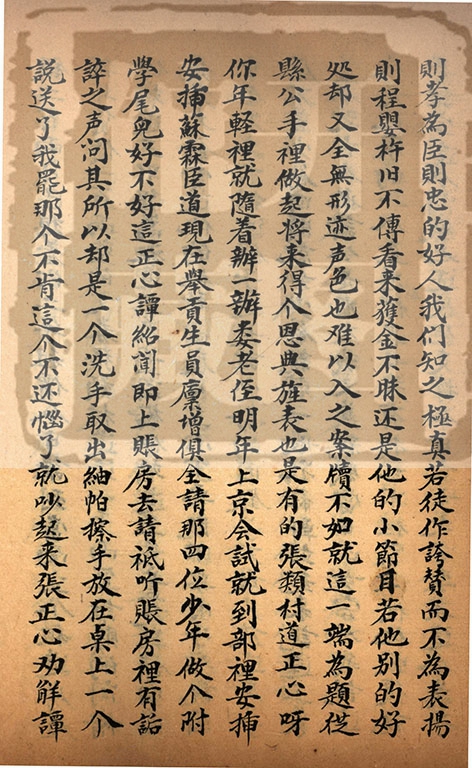 則孝為臣則忠的好人我們知之極真若徒作誇賛而不為表揚
則程嬰杵旧不傳看来獲金不昧还是他的小節目若他别的好
処却又全無形迹声色也难以入之案牘不如就這一端為題従
縣公手裡做起将来得个恩典旌表也是有的張類村道正心呀
你年軽裡就隨着辦一辦娄老侄明年上京会試就到部裡安揷
安揷蘇霖臣道現在舉貢生員廪增俱全請那四位少年做个附
學尾兒好不好這正心譚紹聞即上賬房去請祗听賬房裡有詬
誶之声问其所以却是一个洗手取出紬帕擦手放在桌上一个
説送了我罷那个不肯這个不还惱了就吵起来張正心劝解譚